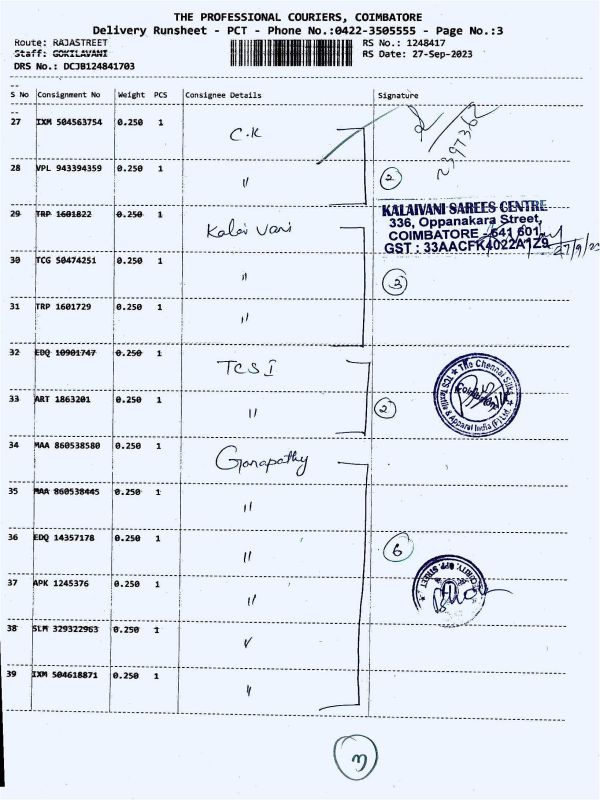 THE PROFESSIONAL COURIERS, COIMBATORE
Delivery Runsheet - PCT - Phone No.:0422-3505555 - Page No.:3
Route: RAJASTREET RS No.: 1248417
Staff: GOKILAVANI RS Date: 27-Sep-2023
DRS No.: DCJB124841703
S No Consignment No Weight PCS Consignee Details Signature
27 IXM 504563754 0.250 1 C.K
2397362
28 VPL 943394359 0.250 1 〃 2
29 TRP 1601822 0.250 1 Kalai vani
KALAIVANI SAREES CENTRE
336, Oppanakara Street,
COIMBATORE - 641 001.
GST : 33AACFK4022A1Z9
27/9/23
30 TCG 50474251 0.250 1 〃 3
31 TRP 1601729 0.250 1 〃
32 EDQ 10901747 0.250 1 TCS I
The Chennai Silks
TCS Textile & Apparal India (P) Ltd.
33 ART 1863201 0.250 1 〃 2
34 MAA 860538580 0.250 1 Ganapathy
35 MAA 860538445 0.250 1 〃
36 EDQ 14357178 0.250 1 〃 6
37 APK 1245376 0.250 1 〃
38 SLM 329322963 0.250 1 〃
39 IXM 504618871 0.250 1 〃